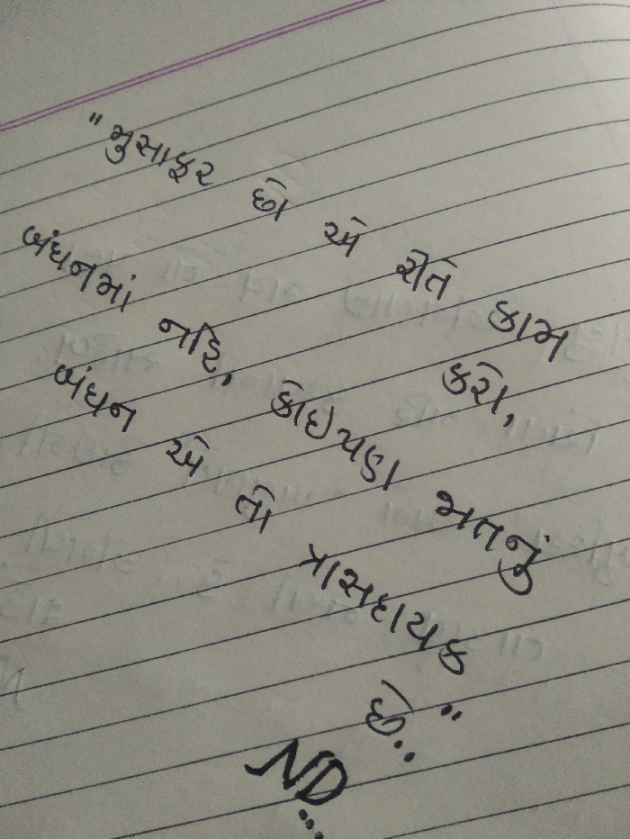 "મુસાફર છો એ રીતે કામ કરો,
બંધનમાં નહિ, કોઇપણ મતનું
બંધન એ તો ત્રાસદાયક છે.."
ND...